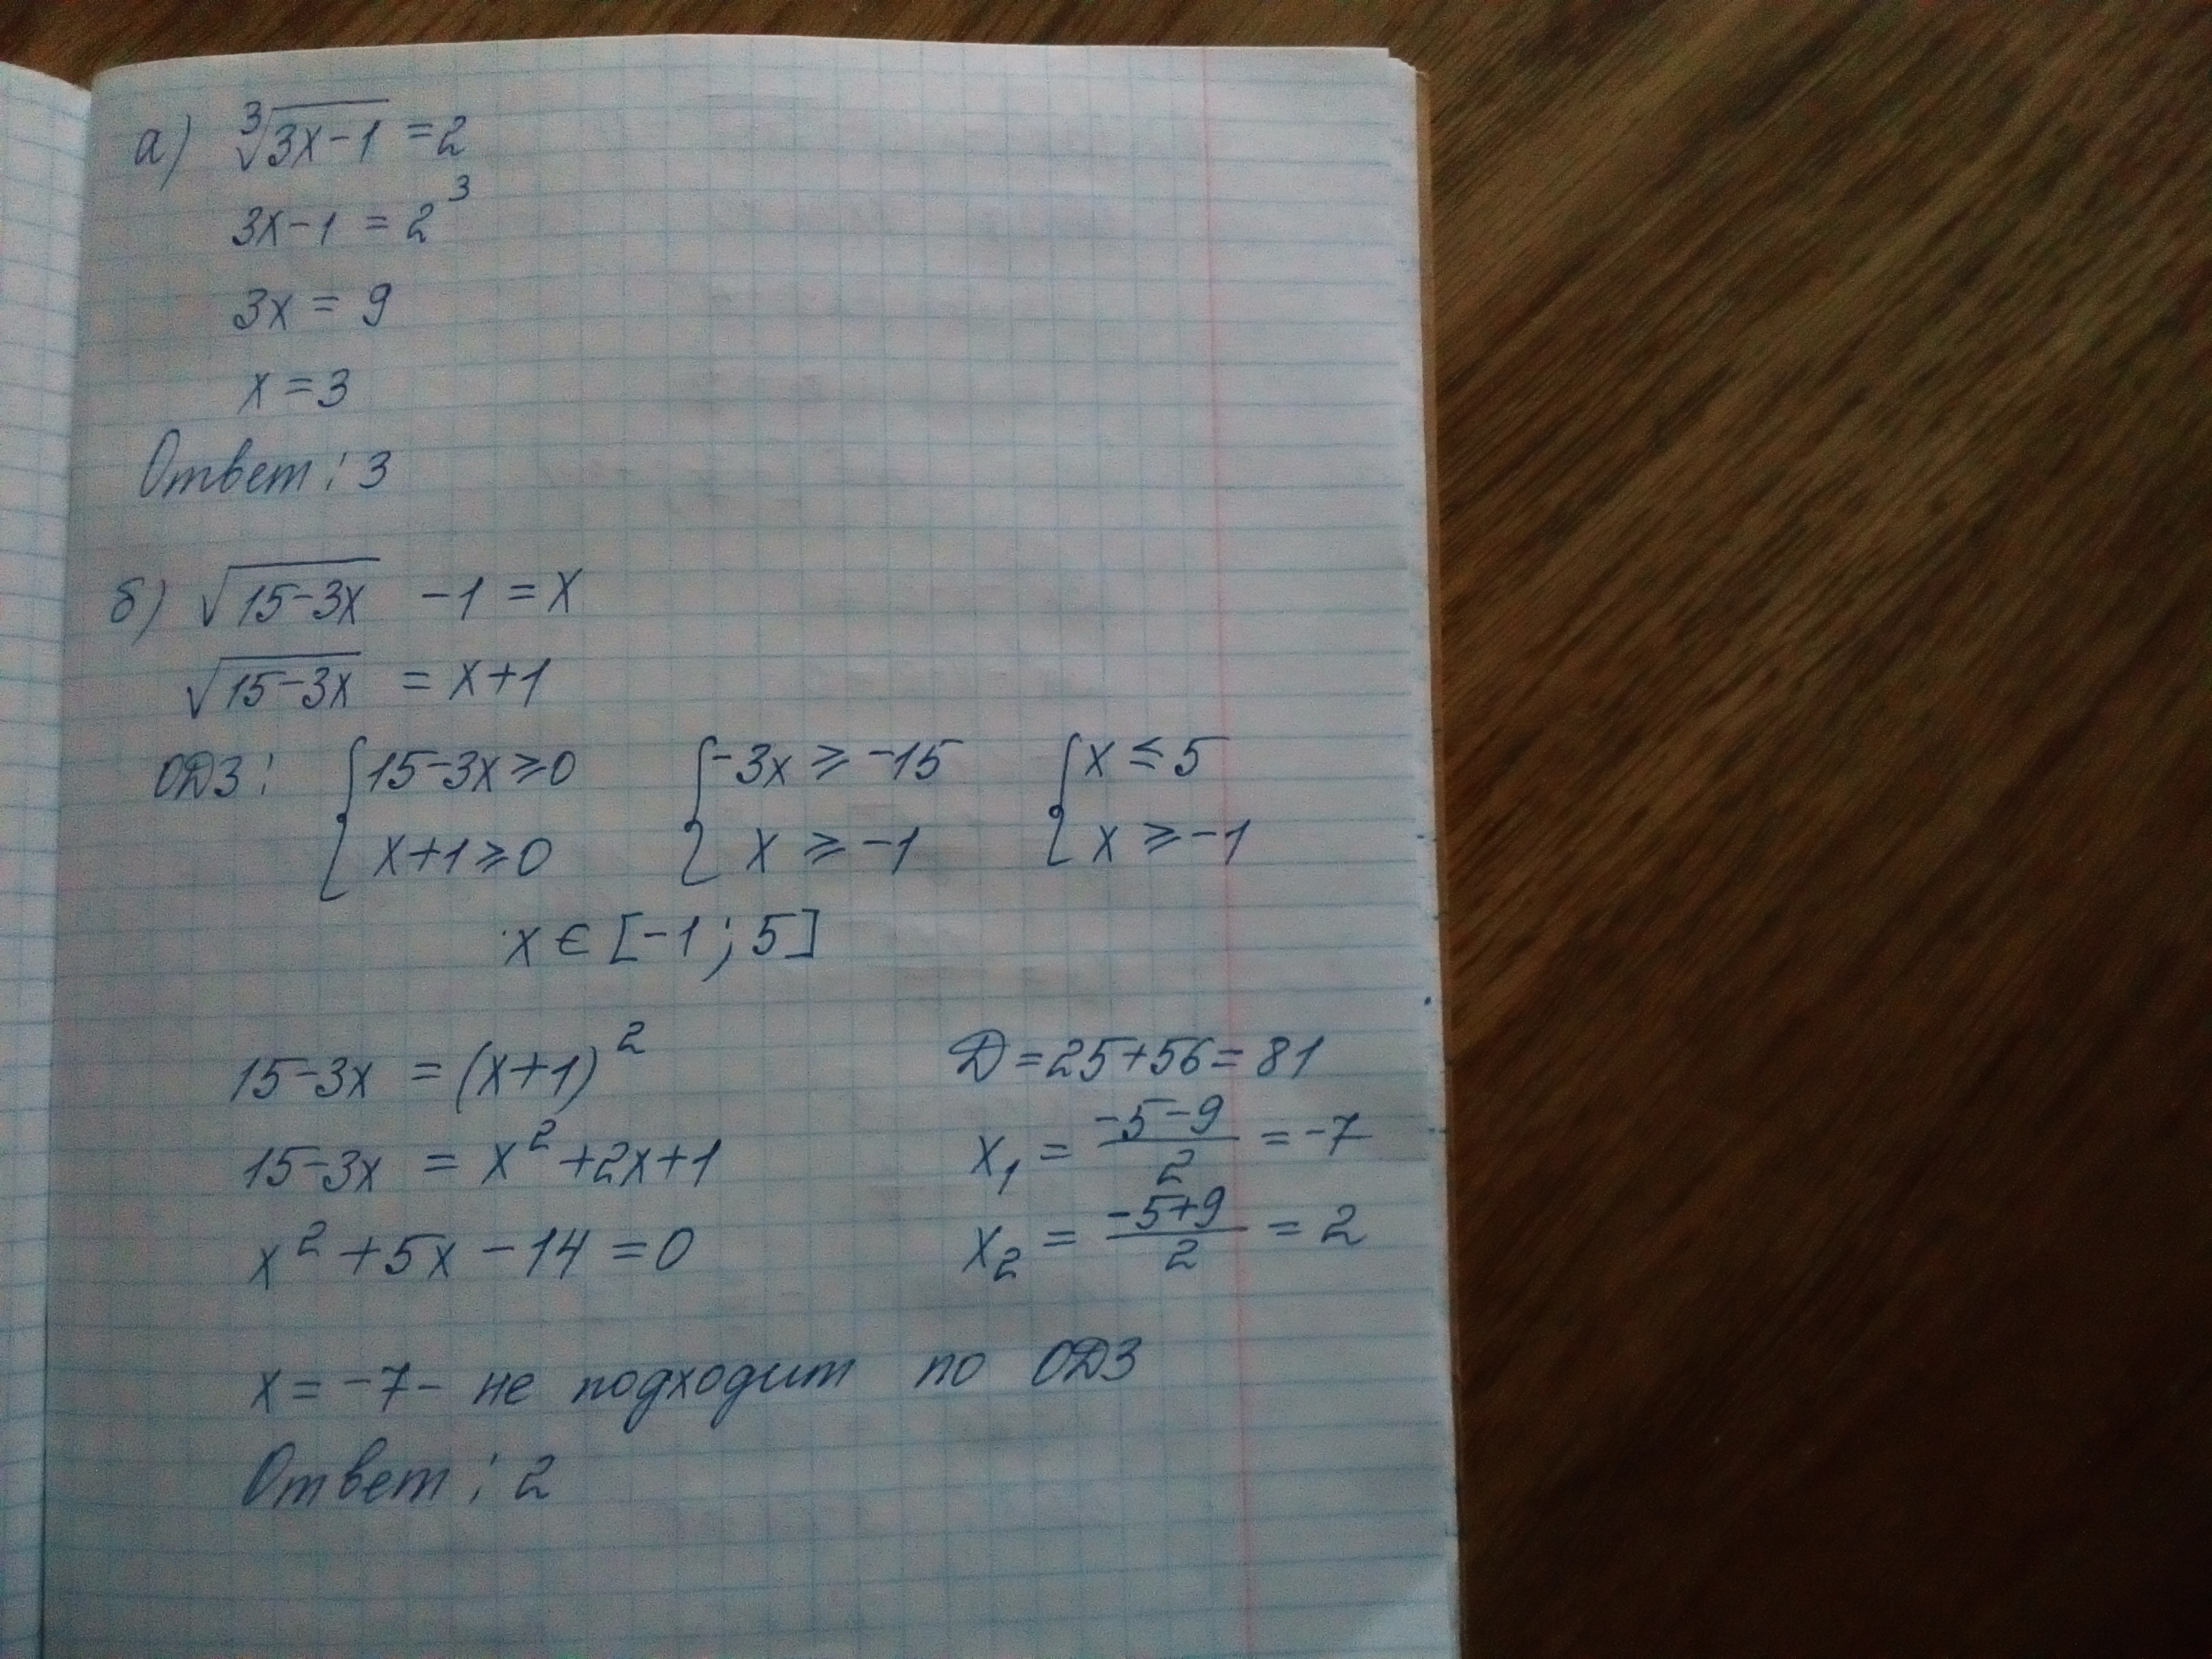 а) ∛(3x-1) = 2
3x-1 = 2³
3x = 9
x = 3
Ответ: 3
б) √(15-3x) -1 = x
√(15-3x) = x+1
ОДЗ: { 15-3x ≥ 0 { -3x ≥ -15 { x ≤ 5
{ x+1 ≥ 0 { x ≥ -1 { x ≥ -1
x ∈ [-1; 5]
15-3x = (x+1)²
15-3x = x²+2x+1
x²+5x-14 = 0
D = 25+56 = 81
x₁ = (-5-9)/2 = -7
x₂ = (-5+9)/2 = 2
x = -7 - не подходит по ОДЗ
Ответ: 2